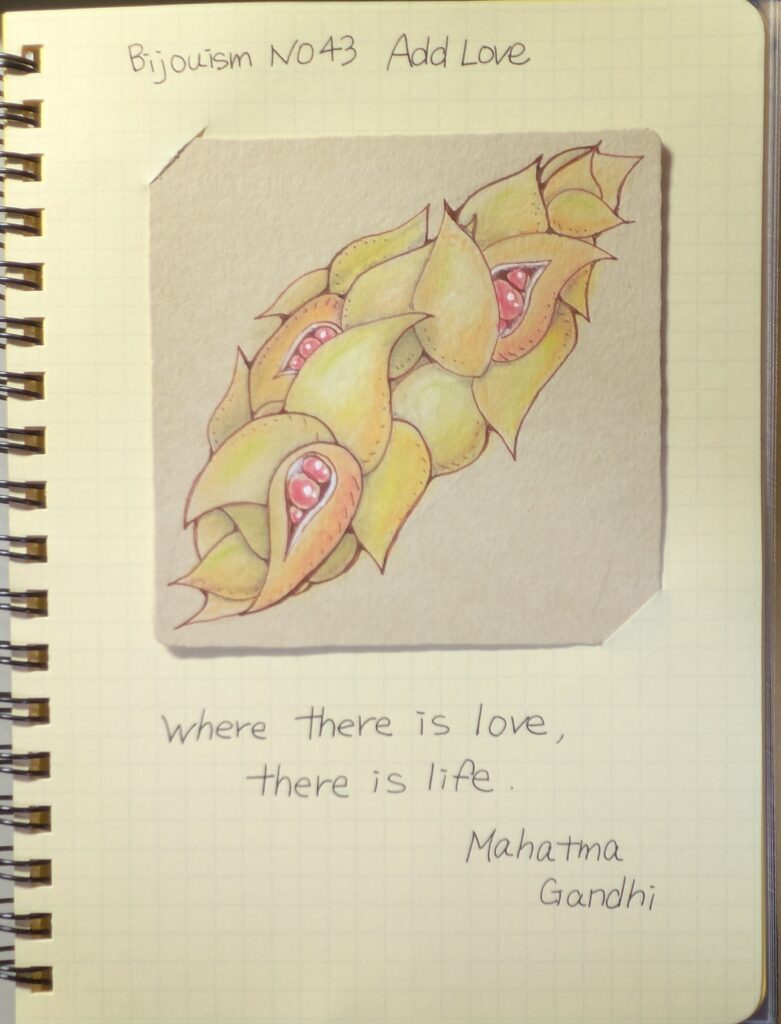 Bijouism NO43 Add Love
Where there is love,
there is life.
Mahatma
Gandhi